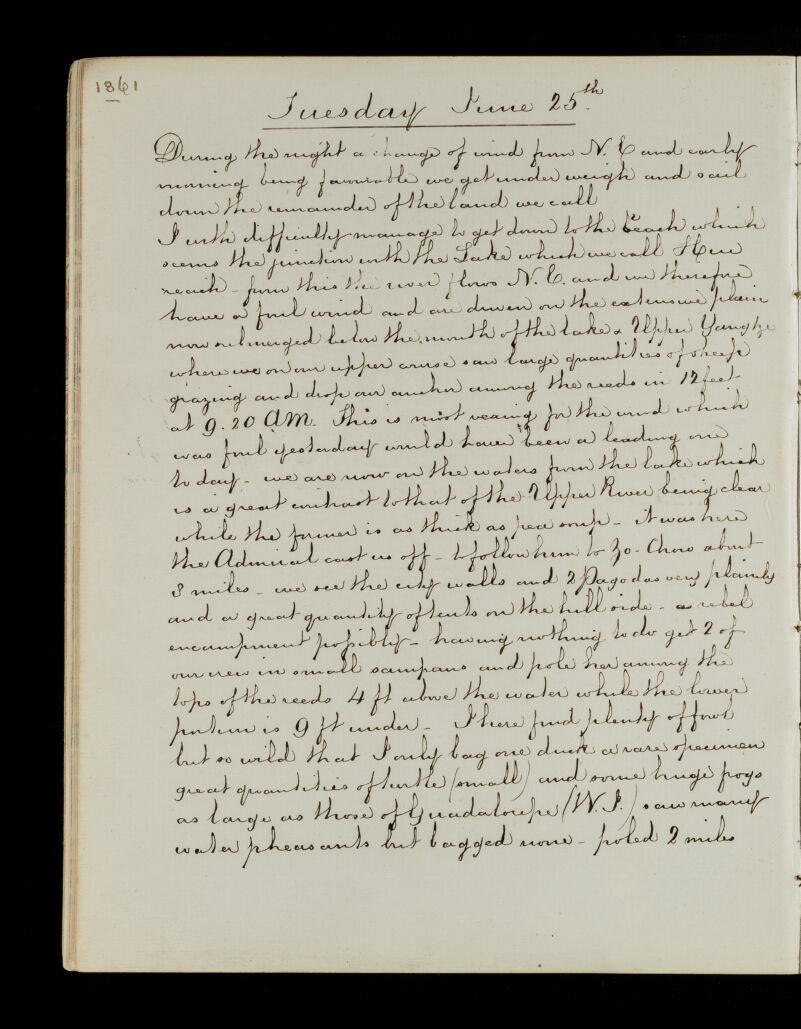 1861
Tuesday June 25th.
During the night a change of wind from N. E and early
morning being favourable we get under weigh and sail
down the remainder of the land we call
I with difficulty manage to get down to the beach which
seems the junction with the Lake which we call
reach - from this the river flows N. E. and we therefore
have a foul wind and are driven on the extensive plain
now submerged below the mouth of the lake & Upper Yangtze
where we on our upper cruise saw large quantities of sheep
grazing and drop our anchor among the reeds in 12 feet
at 9.20 AM. This is most vexing for the wind which
was foul yesterday would have been a leading one
to day - we are now on the waters from the lake which
is a great contrast to that of the Upper River being clear
while the former is as thick as pea soup - it was here
the Admiral cast us off - to follow him to Zo-Chow about
8 miles - we see the city walls and 2 Pagodas very plainly
and a great quantity of tents on the hill side - a rebel
encampment possibly - having nothing to do get 2 of
our crew in small sampans and pole her among the
tops of the reeds 4 ft above the water while the lower
portion is 9 ft under - I here find plenty of fowl
but so wild that I only bag one duck a rare specimen
great quantities of turtle (small) and some huge frogs
as large as those of Guadaloupe (W.I.) saw many
water pheasants but bagged none - poled 2 miles